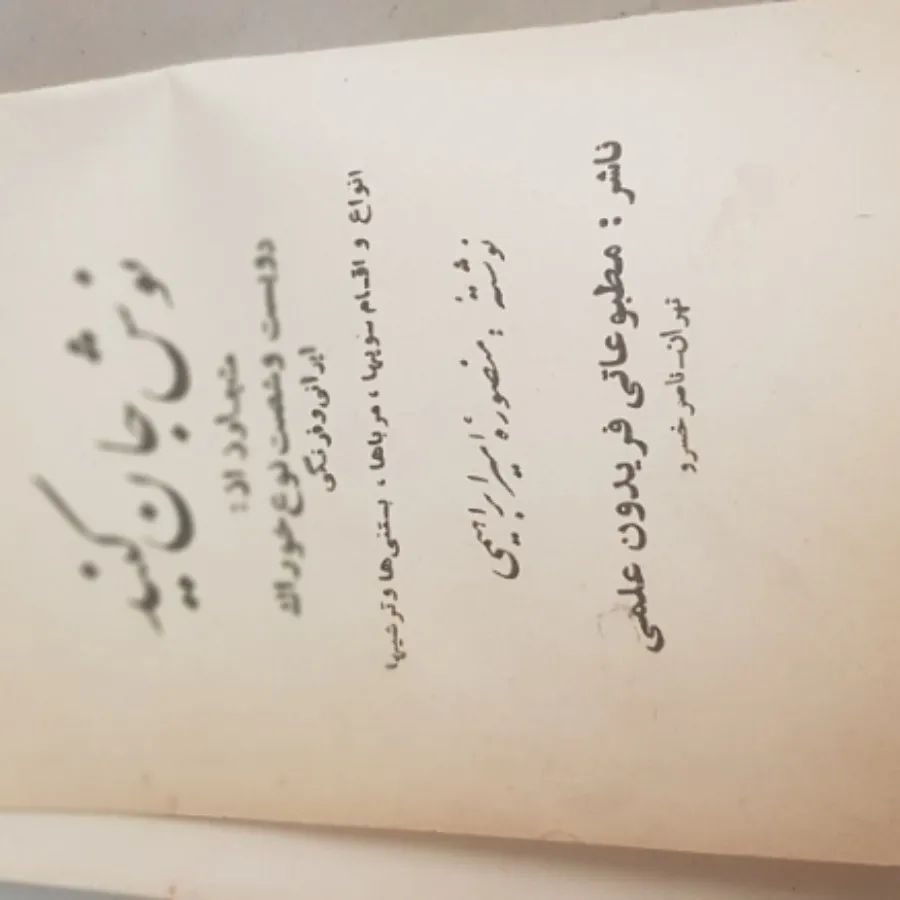 نوش جان کنید
متجاوز از:
دویست و شصت نوع خوراک
ایرانی و فرنگی
انواع و اقسام سوپها، مرباها، بستنی‌ها و ترشیها
نوشته: منصوره امیرابراهیمی
ناشر: مطبوعاتی فریدون علمی
تهران - ناصر خسرو